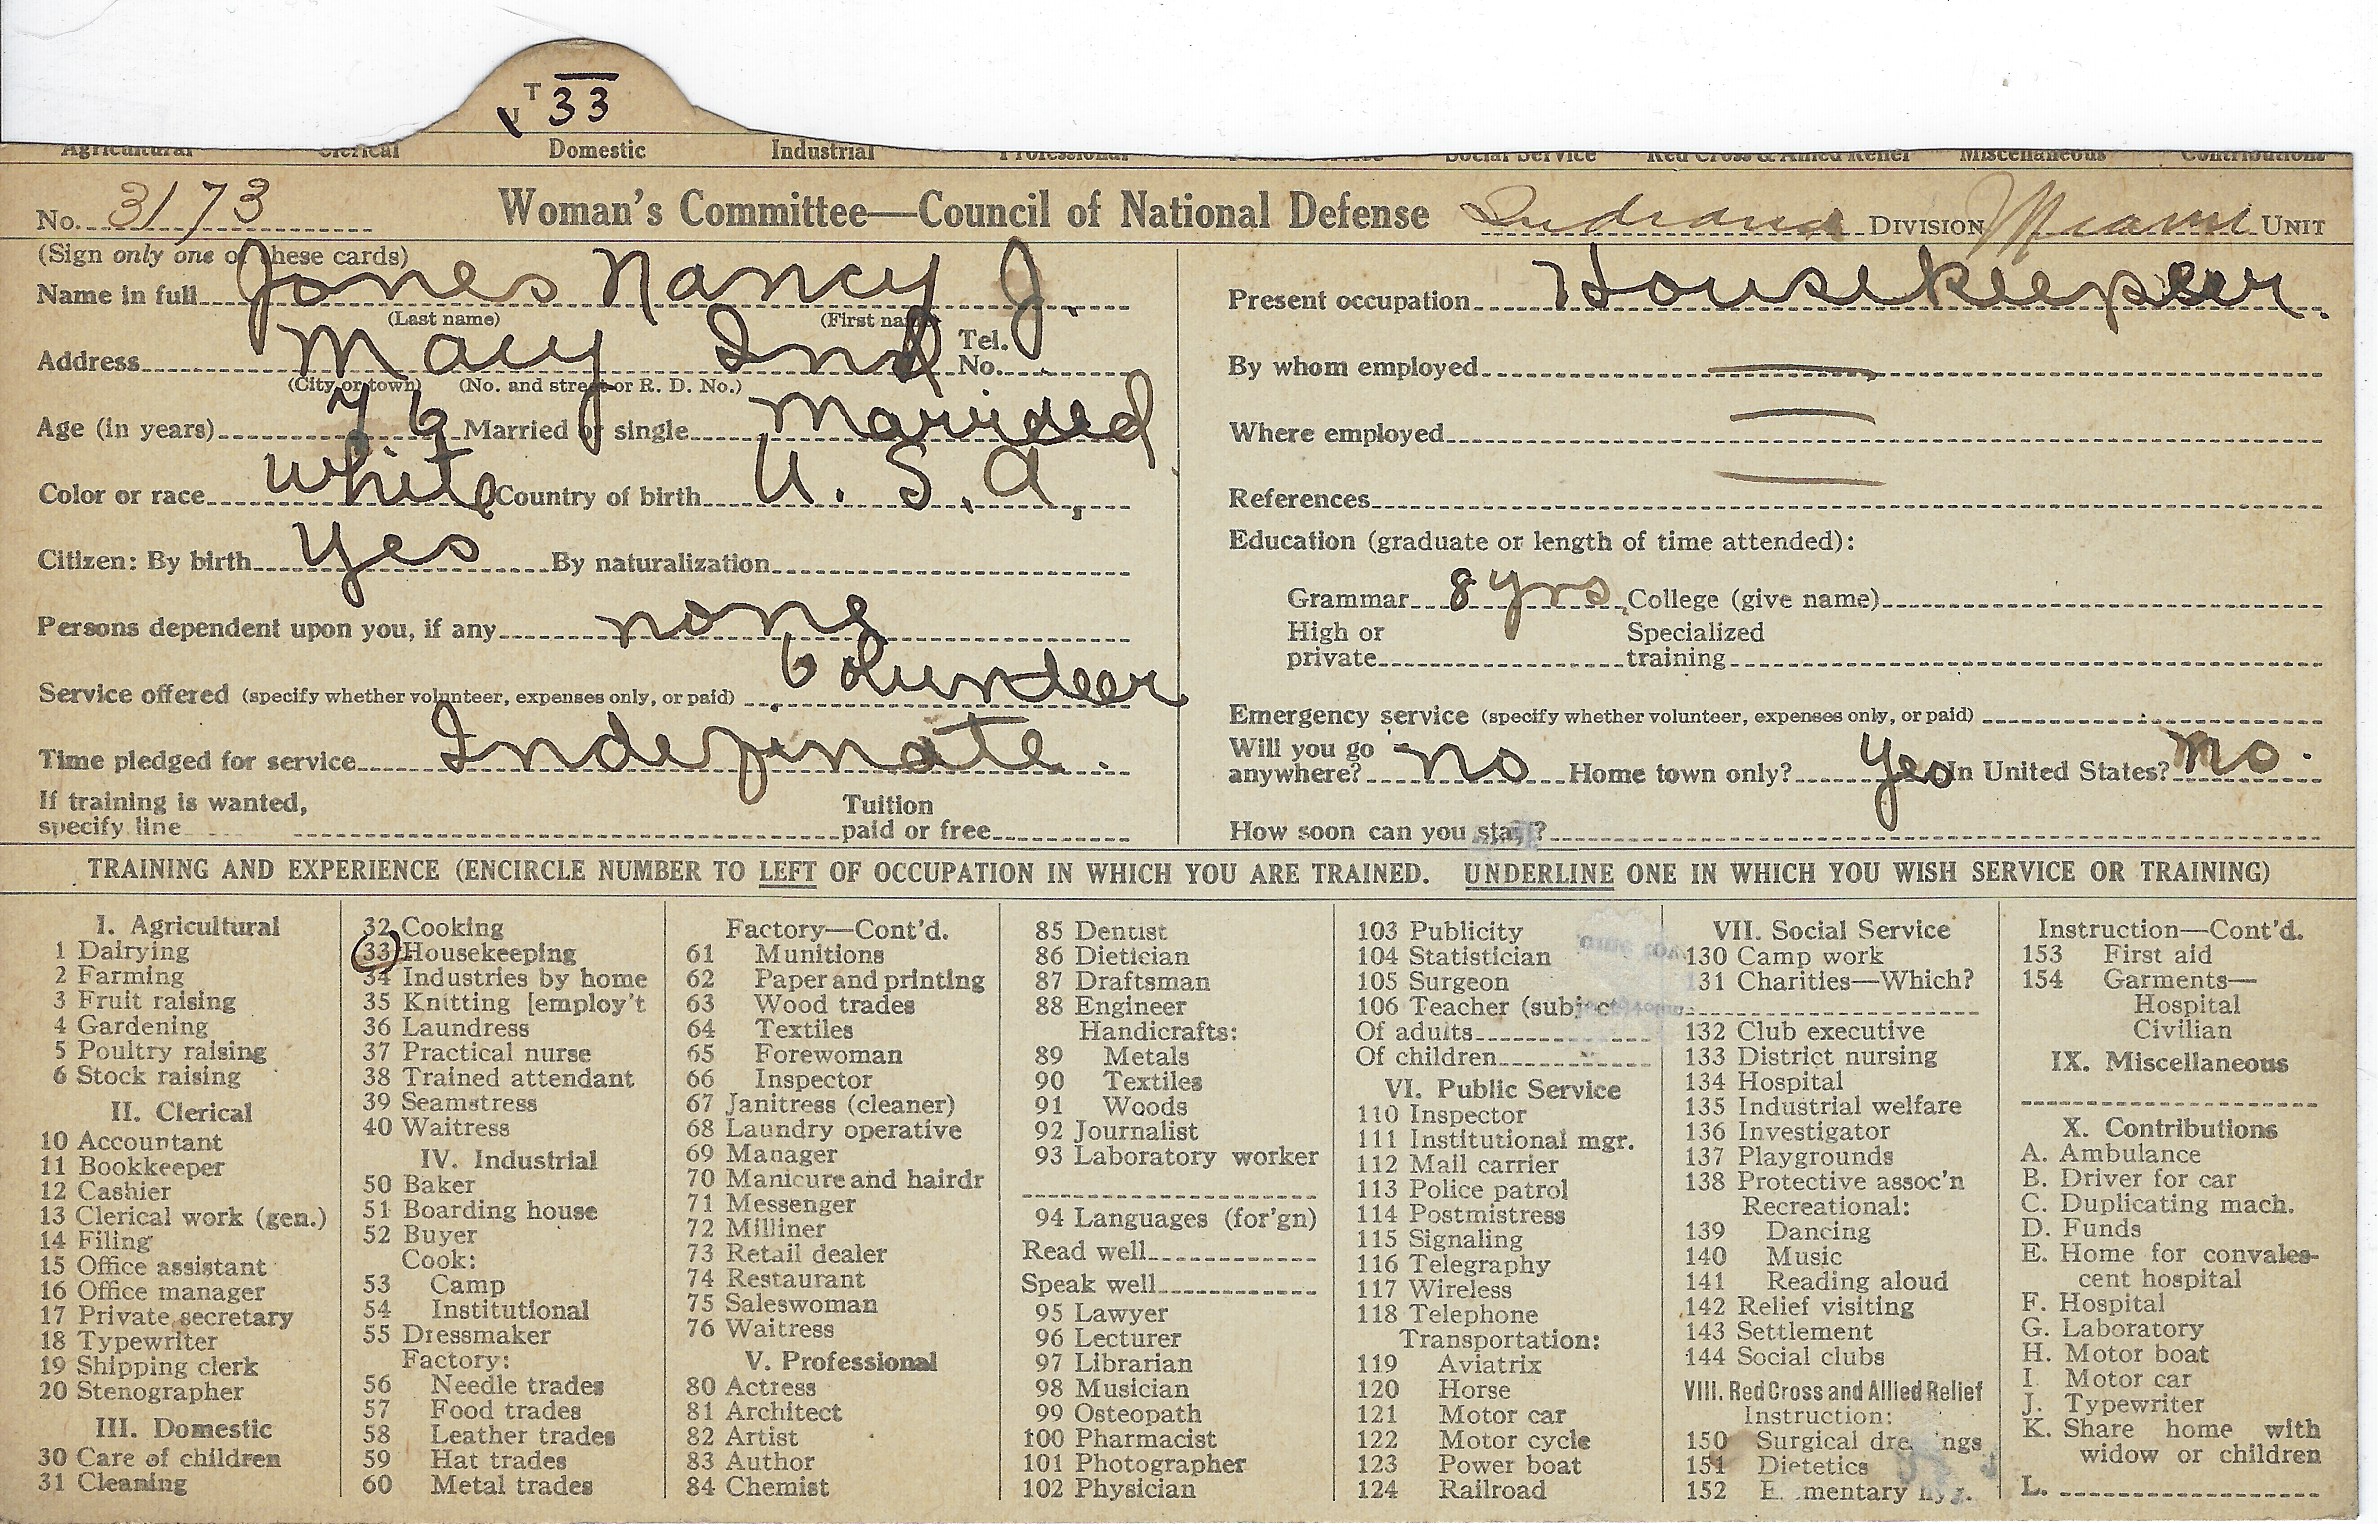 T 33
Agricultural Clerical Domestic Industrial Professional Social Service Red Cross & Allied Relief Miscellaneous Contributions
No. 3173 Woman's Committee—Council of National Defense Indiana Division Miami Unit
(Sign only one of these cards)
Name in full Jones Nancy J.
(Last name) (First name)
Address Macy Ind Tel. No.
(City or town) (No. and street or R. D. No.)
Age (in years) 76 Married or single Married
Color or race White Country of birth U. S. A.
Citizen: By birth Yes By naturalization
Persons dependent upon you, if any none
Service offered (specify whether volunteer, expenses only, or paid) Volunteer
Time pledged for service Indefinate.
If training is wanted, specify line Tuition paid or free
Present occupation Housekeeper.
By whom employed —
Where employed =
References —
Education (graduate or length of time attended):
Grammar 8 yrs. College (give name)
High or private Specialized training
Emergency service (specify whether volunteer, expenses only, or paid)
Will you go anywhere? no Home town only? Yes In United States? No.
How soon can you start?
TRAINING AND EXPERIENCE (ENCIRCLE NUMBER TO LEFT OF OCCUPATION IN WHICH YOU ARE TRAINED. UNDERLINE ONE IN WHICH YOU WISH SERVICE OR TRAINING)
I. Agricultural
1 Dairying
2 Farming
3 Fruit raising
4 Gardening
5 Poultry raising
6 Stock raising
II. Clerical
10 Accountant
11 Bookkeeper
12 Cashier
13 Clerical work (gen.)
14 Filing
15 Office assistant
16 Office manager
17 Private secretary
18 Typewriter
19 Shipping clerk
20 Stenographer
III. Domestic
30 Care of children
31 Cleaning
32 Cooking
33 Housekeeping
34 Industries by home
35 Knitting [employ't
36 Laundress
37 Practical nurse
38 Trained attendant
39 Seamstress
40 Waitress
IV. Industrial
50 Baker
51 Boarding house
52 Buyer
Cook:
53 Camp
54 Institutional
55 Dressmaker
Factory:
56 Needle trades
57 Food trades
58 Leather trades
59 Hat trades
60 Metal trades
Factory—Cont'd.
61 Munitions
62 Paper and printing
63 Wood trades
64 Textiles
65 Forewoman
66 Inspector
67 Janitress (cleaner)
68 Laundry operative
69 Manager
70 Manicure and hairdr
71 Messenger
72 Milliner
73 Retail dealer
74 Restaurant
75 Saleswoman
76 Waitress
V. Professional
80 Actress
81 Architect
82 Artist
83 Author
84 Chemist
85 Dentist
86 Dietician
87 Draftsman
88 Engineer
Handicrafts:
89 Metals
90 Textiles
91 Woods
92 Journalist
93 Laboratory worker
94 Languages (for'gn)
Read well
Speak well
95 Lawyer
96 Lecturer
97 Librarian
98 Musician
99 Osteopath
100 Pharmacist
101 Photographer
102 Physician
103 Publicity
104 Statistician
105 Surgeon
106 Teacher (subject
Of adults
Of children
VI. Public Service
110 Inspector
111 Institutional mgr.
112 Mail carrier
113 Police patrol
114 Postmistress
115 Signaling
116 Telegraphy
117 Wireless
118 Telephone
Transportation:
119 Aviatrix
120 Horse
121 Motor car
122 Motor cycle
123 Power boat
124 Railroad
VII. Social Service
130 Camp work
131 Charities—Which?
132 Club executive
133 District nursing
134 Hospital
135 Industrial welfare
136 Investigator
137 Playgrounds
138 Protective assoc'n
Recreational:
139 Dancing
140 Music
141 Reading aloud
142 Relief visiting
143 Settlement
144 Social clubs
VIII. Red Cross and Allied Relief
Instruction:
150 Surgical dressings
151 Dietetics
152 Elementary hyg.
Instruction—Cont'd.
153 First aid
154 Garments—
Hospital
Civilian
IX. Miscellaneous
X. Contributions
A. Ambulance
B. Driver for car
C. Duplicating mach.
D. Funds
E. Home for convales-
cent hospital
F. Hospital
G. Laboratory
H. Motor boat
I. Motor car
J. Typewriter
K. Share home with
widow or children
L.